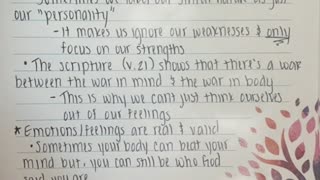 our "personality"
- It makes us ignore our weaknesses & only
focus on our strengths
• The scripture (v.21) shows that there's a war
between the war in mind & the war in body
- This is why we can't just think ourselves
out of our feelings
* Emotions/feelings are real & valid
• Sometimes your body can beat your
mind but, you can still be who God
said you are